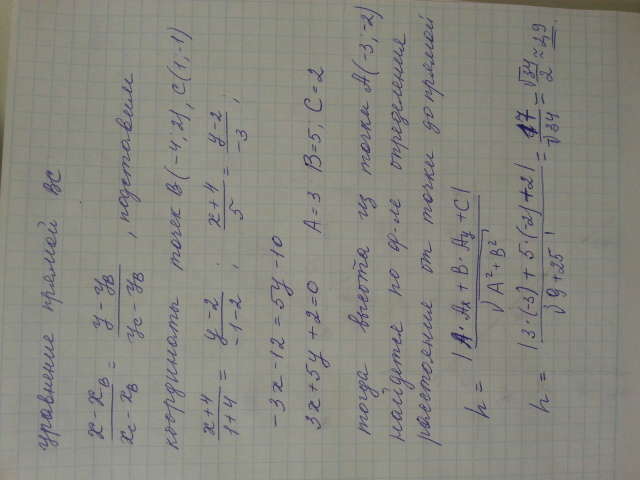 уравнение прямой BC
x - x_B / x_C - x_B = y - y_B / y_C - y_B , подставим
координаты точек B(-4, 2), C(1, -1)
x+4 / 1+4 = y-2 / -1-2 ; x+4 / 5 = y-2 / -3 ;
-3x - 12 = 5y - 10
3x + 5y + 2 = 0 A = 3 B = 5; C = 2
тогда высота из точки A(-3; -2)
найдется по ф-ле определения
расстояние от точки до прямой
h = |A·Ax + B·Ay + C| / √A² + B²
h = |3·(-3) + 5·(-2) + 2| / √9 + 25 = 17 / √34 = √34 / 2 ≈ 2,9